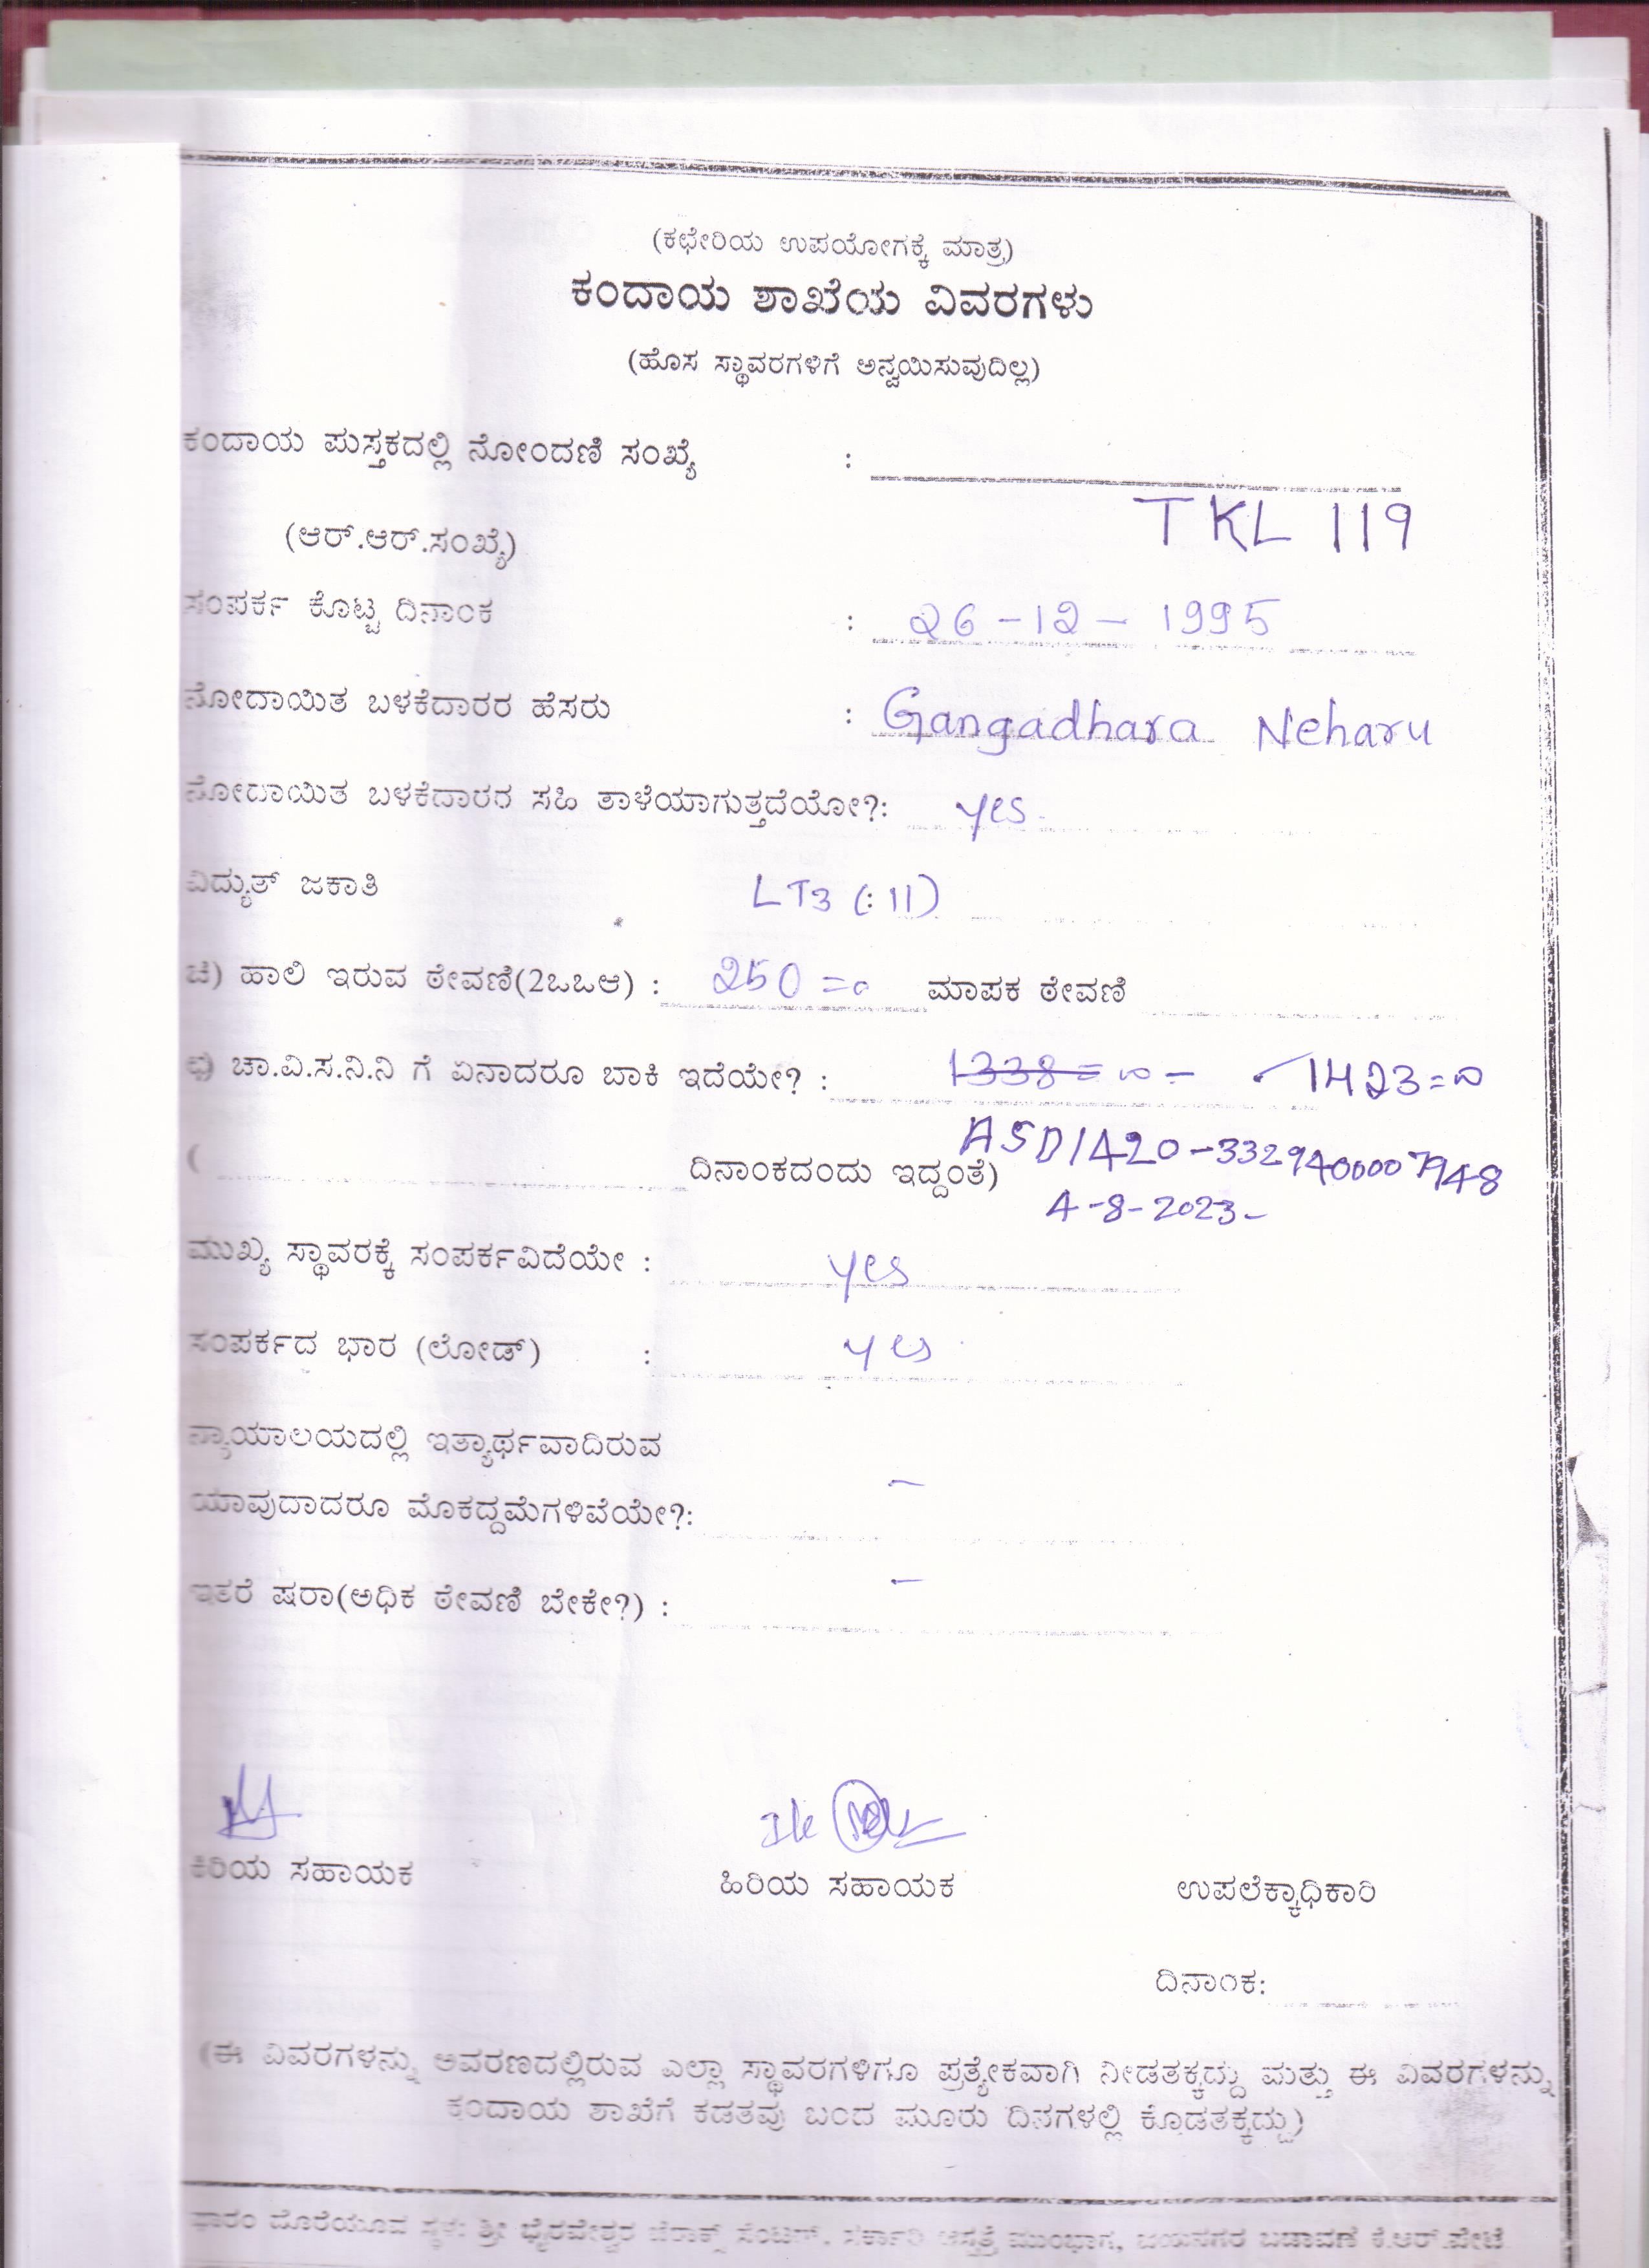 (ಕಛೇರಿಯ ಉಪಯೋಗಕ್ಕೆ ಮಾತ್ರ)
ಕಂದಾಯ ಶಾಖೆಯ ವಿವರಗಳು
(ಹೊಸ ಸ್ಥಾವರಗಳಿಗೆ ಅನ್ವಯಿಸುವುದಿಲ್ಲ)
ಕಂದಾಯ ಪುಸ್ತಕದಲ್ಲಿ ನೋಂದಣಿ ಸಂಖ್ಯೆ :
(ಆರ್.ಆರ್.ಸಂಖ್ಯೆ) TKL 119
ಸಂಪರ್ಕ ಕೊಟ್ಟ ದಿನಾಂಕ : 26-12-1995
ನೋದಾಯಿತ ಬಳಕೆದಾರರ ಹೆಸರು : Gangadhara Neharu
ನೋದಾಯಿತ ಬಳಕೆದಾರರ ಸಹಿ ತಾಳೆಯಾಗುತ್ತದೆಯೋ?: yes.
ವಿದ್ಯುತ್ ಜಕಾತಿ LT3 (:11)
ಚೆ) ಹಾಲಿ ಇರುವ ಠೇವಣಿ(2ಒಒಆ) : 250=0 ಮಾಪಕ ಠೇವಣಿ
ಚಾ.ವಿ.ಸ.ನಿ.ನಿ ಗೆ ಏನಾದರೂ ಬಾಕಿ ಇದೆಯೇ? : 1338=00- 1423=00
ASD/420-332940000 7948
( ದಿನಾಂಕದಂದು ಇದ್ದಂತೆ)
4-8-2023-
ಮುಖ್ಯ ಸ್ಥಾವರಕ್ಕೆ ಸಂಪರ್ಕವಿದೆಯೇ : yes
ಸಂಪರ್ಕದ ಭಾರ (ಲೋಡ್) : yes
ನ್ಯಾಯಾಲಯದಲ್ಲಿ ಇತ್ಯಾರ್ಥವಾದಿರುವ
ಯಾವುದಾದರೂ ಮೊಕದ್ದಮೆಗಳಿವೆಯೇ?: -
ಇತರೆ ಷರಾ(ಅಧಿಕ ಠೇವಣಿ ಬೇಕೇ?) : -
ಕಿರಿಯ ಸಹಾಯಕ ಹಿರಿಯ ಸಹಾಯಕ ಉಪಲೆಕ್ಕಾಧಿಕಾರಿ
ದಿನಾಂಕ:
(ಈ ವಿವರಗಳನ್ನು ಆವರಣದಲ್ಲಿರುವ ಎಲ್ಲಾ ಸ್ಥಾವರಗಳಿಗೂ ಪ್ರತ್ಯೇಕವಾಗಿ ನೀಡತಕ್ಕದ್ದು ಮತ್ತು ಈ ವಿವರಗಳನ್ನು
ಕಂದಾಯ ಶಾಖೆಗೆ ಕಡತವು ಬಂದ ಮೂರು ದಿನಗಳಲ್ಲಿ ಕೊಡತಕ್ಕದ್ದು)
ಫಾರಂ ದೊರೆಯೂವ ಸ್ಥಳ: ಶ್ರೀ ಭೈರವೇಶ್ವರ ಜೆರಾಕ್ಸ್ ಸೆಂಟರ್, ಸರ್ಕಾರಿ ಆಸ್ಪತ್ರೆ ಮುಂಭಾಗ, ಜಯನಗರ ಬಡಾವಣೆ ಕೆ.ಆರ್.ಪೇಟೆ